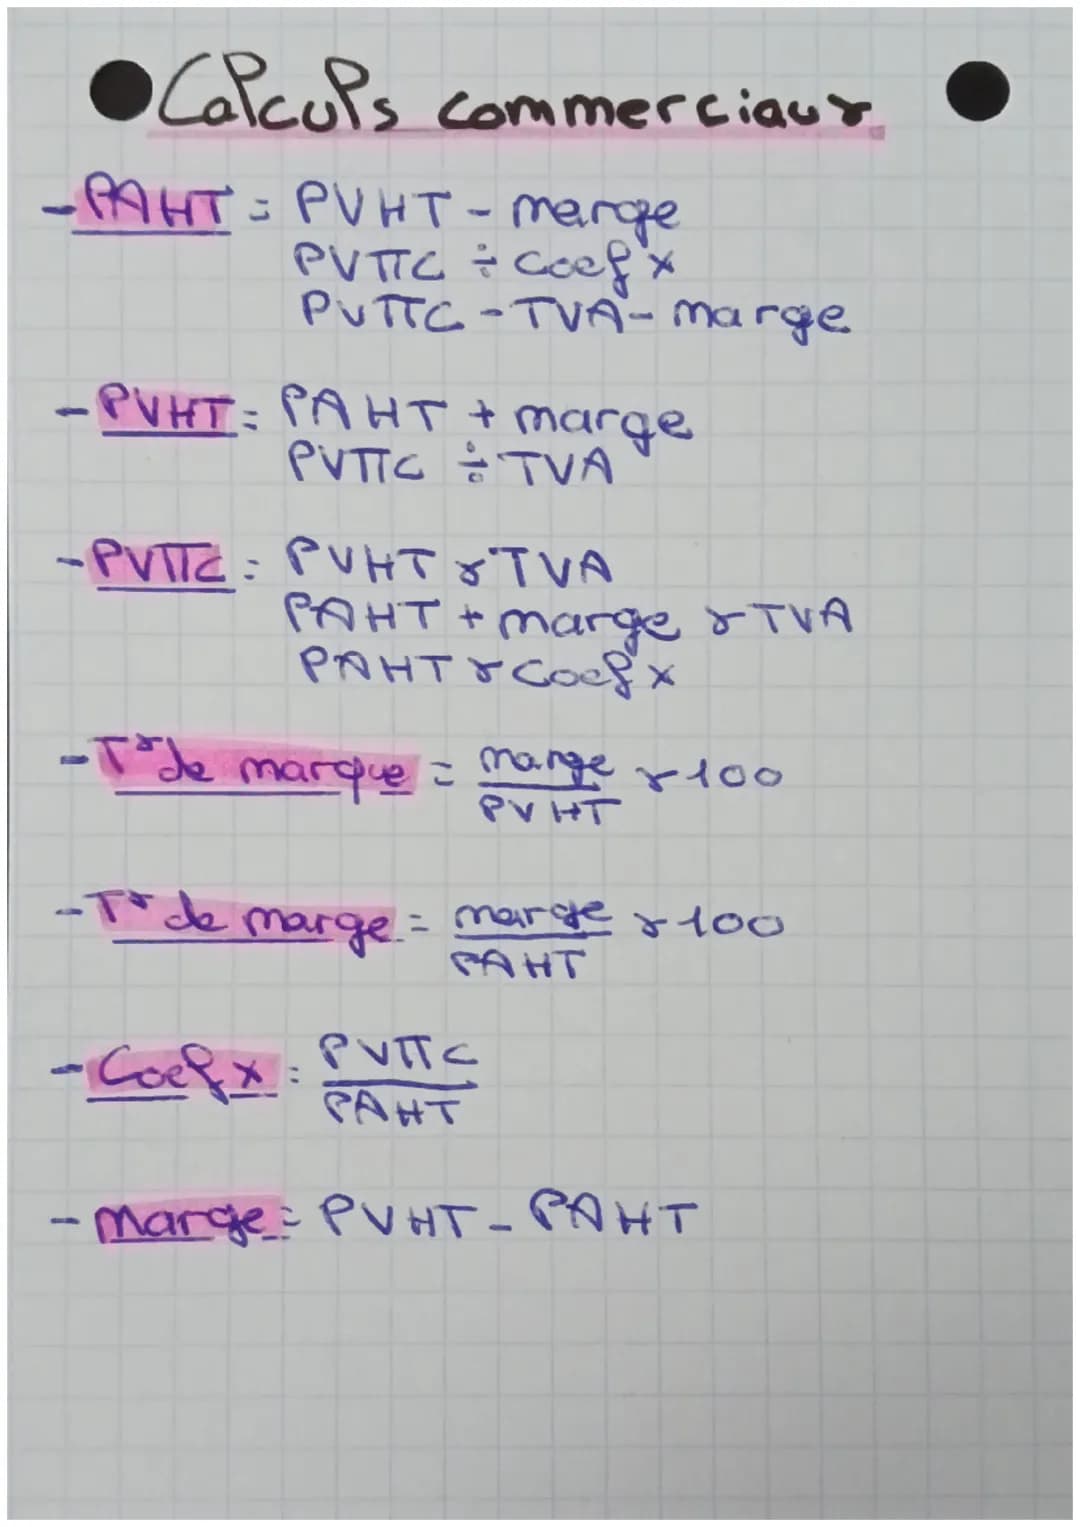 Calculs commerciaux
- PAHT = PVHT - marge
PVTTC ÷ coef x
PVTTC - TVA - marge
- PVHT = PAHT + marge
PVTTC ÷ TVA
- PVTTC = PVHT x TVA
PAHT + marge x TVA
PAHT x coef x
- Tx de marque = marge / PVHT x 100
- Tx de marge = marge / PAHT x 100
- Coef x = PVTTC / PAHT
- marge = PVHT - PAHT